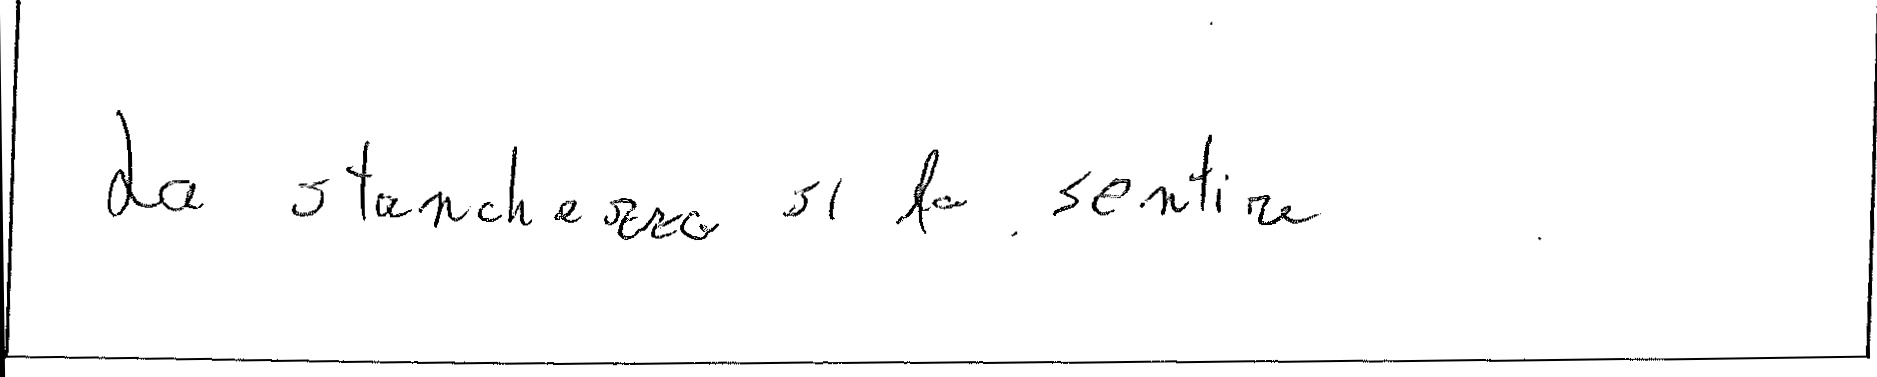 La stanchezza si fa sentire